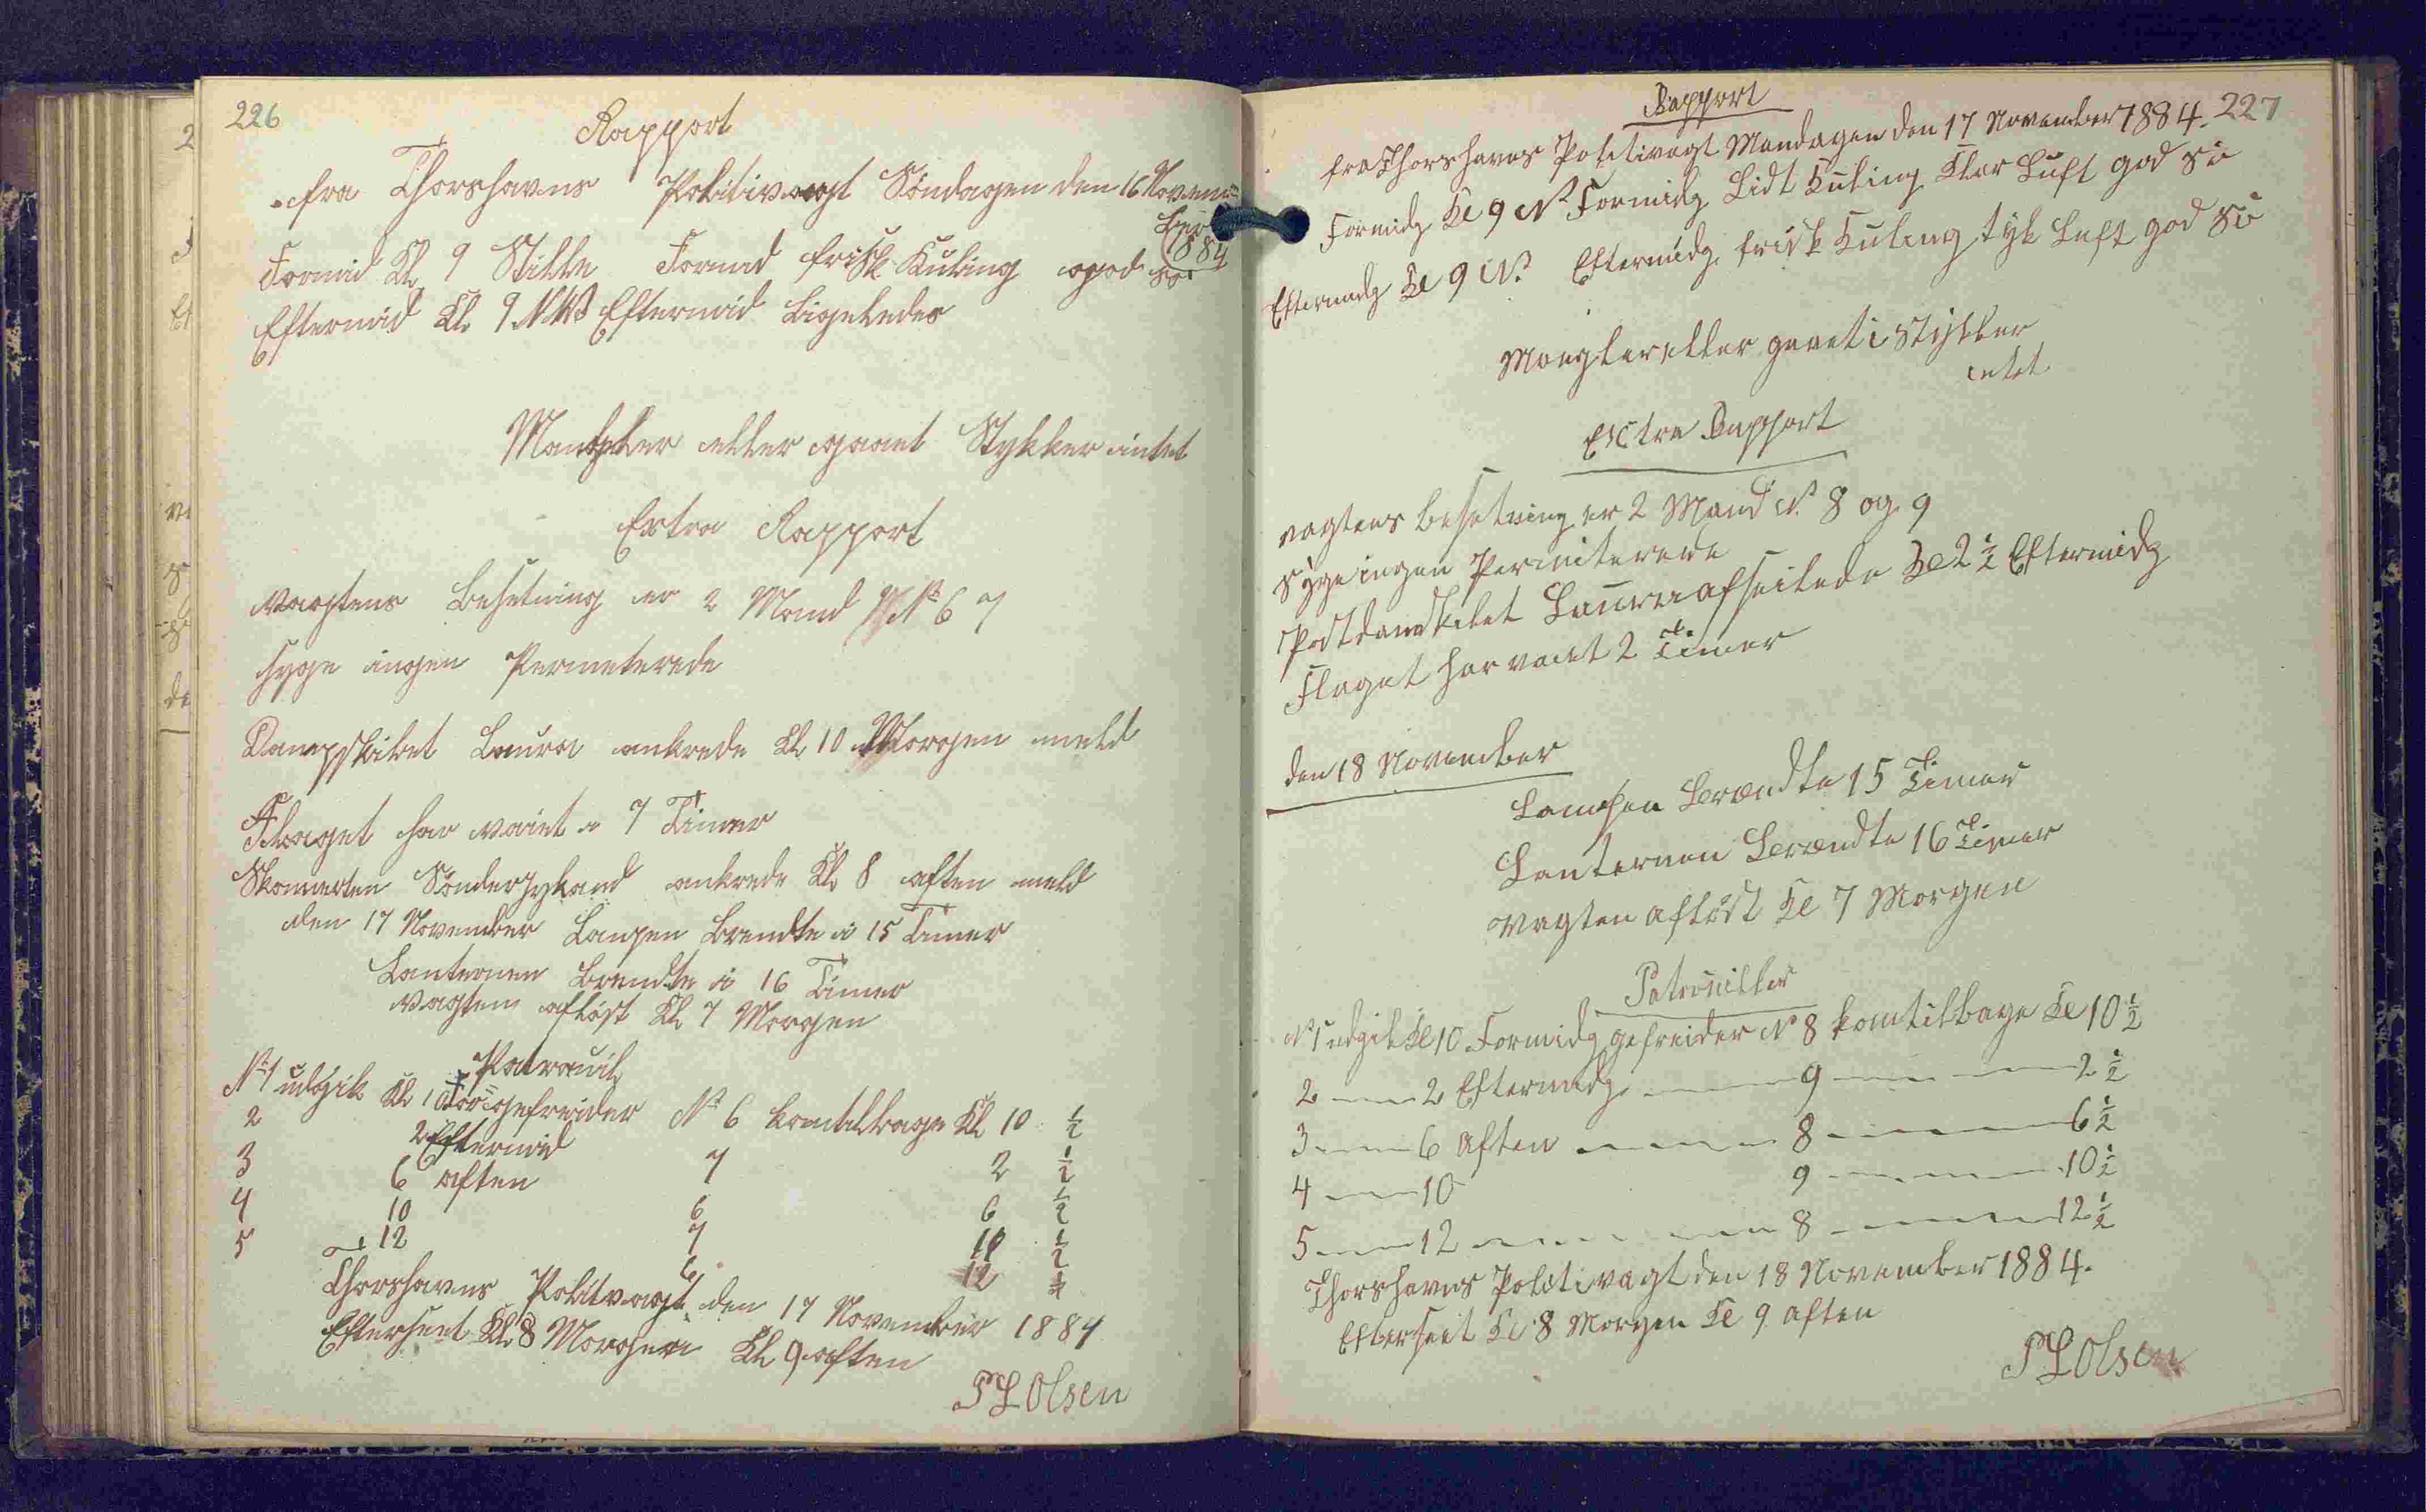 226
Rapport
fra Thorshavns Politivagt Söndagen den 16 Novem=
ber
1884
Formid Kl 9 Stille Formid frisk Kuling god Sø
Eftermid Kl 9 NW Eftermid Ligeledes
Mangler eller gaaet Stykker intet
Extra Rapport
Vagtens Besetning er 2 Mand N 6 7
Syge ingen Permeterede
Dampskibet Laura ankrede Kl 10 Morgen meld
Flaget har vaiet i 7 Timer
Skonnerten Sönderjyland ankrede Kl 8 aften meld
den 17 November Lampen Brendte i 15 Timer
Lanternen Brendte i 16 Timer
Vagten afløst Kl 7 Morgen
Patrouil
N 1 udgik Kl 10 For gefreider N 6 komtilbage Kl 10 ½
2 2 Eftermid 7 2 ½
3 6 aften 6 6 ½
4 10 7 10 ½
5 12 6 12 ½
Thorshavns Politvagt den 17 November 1884
Efterseet Kl 8 Morgen Kl 9 aften
P L Olsen
227
Rapport
fra Thorshavns Politivagt Mandagen den 17 November 1884.
Formidg Kl 9 N Formidg Lidt Kuling Klar Luft god Sö
Eftermidg Kl 9 N Eftermidg frisk Kuling tyk Luft god Sö
Mangler eller gaaet i Stykker
intet
Extra Rapport
vagtens besetning er 2 Mand N 8 og 9
Syge ingen Permiterede
Postdamskibet Laura afseilede Kl 2 ½ Eftermidg
Flaget har vaiet 2 Timer
den 18 November
Lampen Brændte 15 Timer
Lanternen Brændte 16 Timer
Vagten aflöst Kl 7 Morgen
Patrouiller
N 1 udgik Kl 10 Formidg gefreider N 8 komtilbage Kl 10 ½
2 — 2 Eftermidg — 9 — 2 ½
3 — 6 Aften — 8 — 6 ½
4 — 10 9 — 10 ½
5 — 12 — 8 — 12 ½
Thorshavns Politivagt den 18 November 1884.
Efterseet Kl 8 Morgen Kl 9 aften
P L Olsen